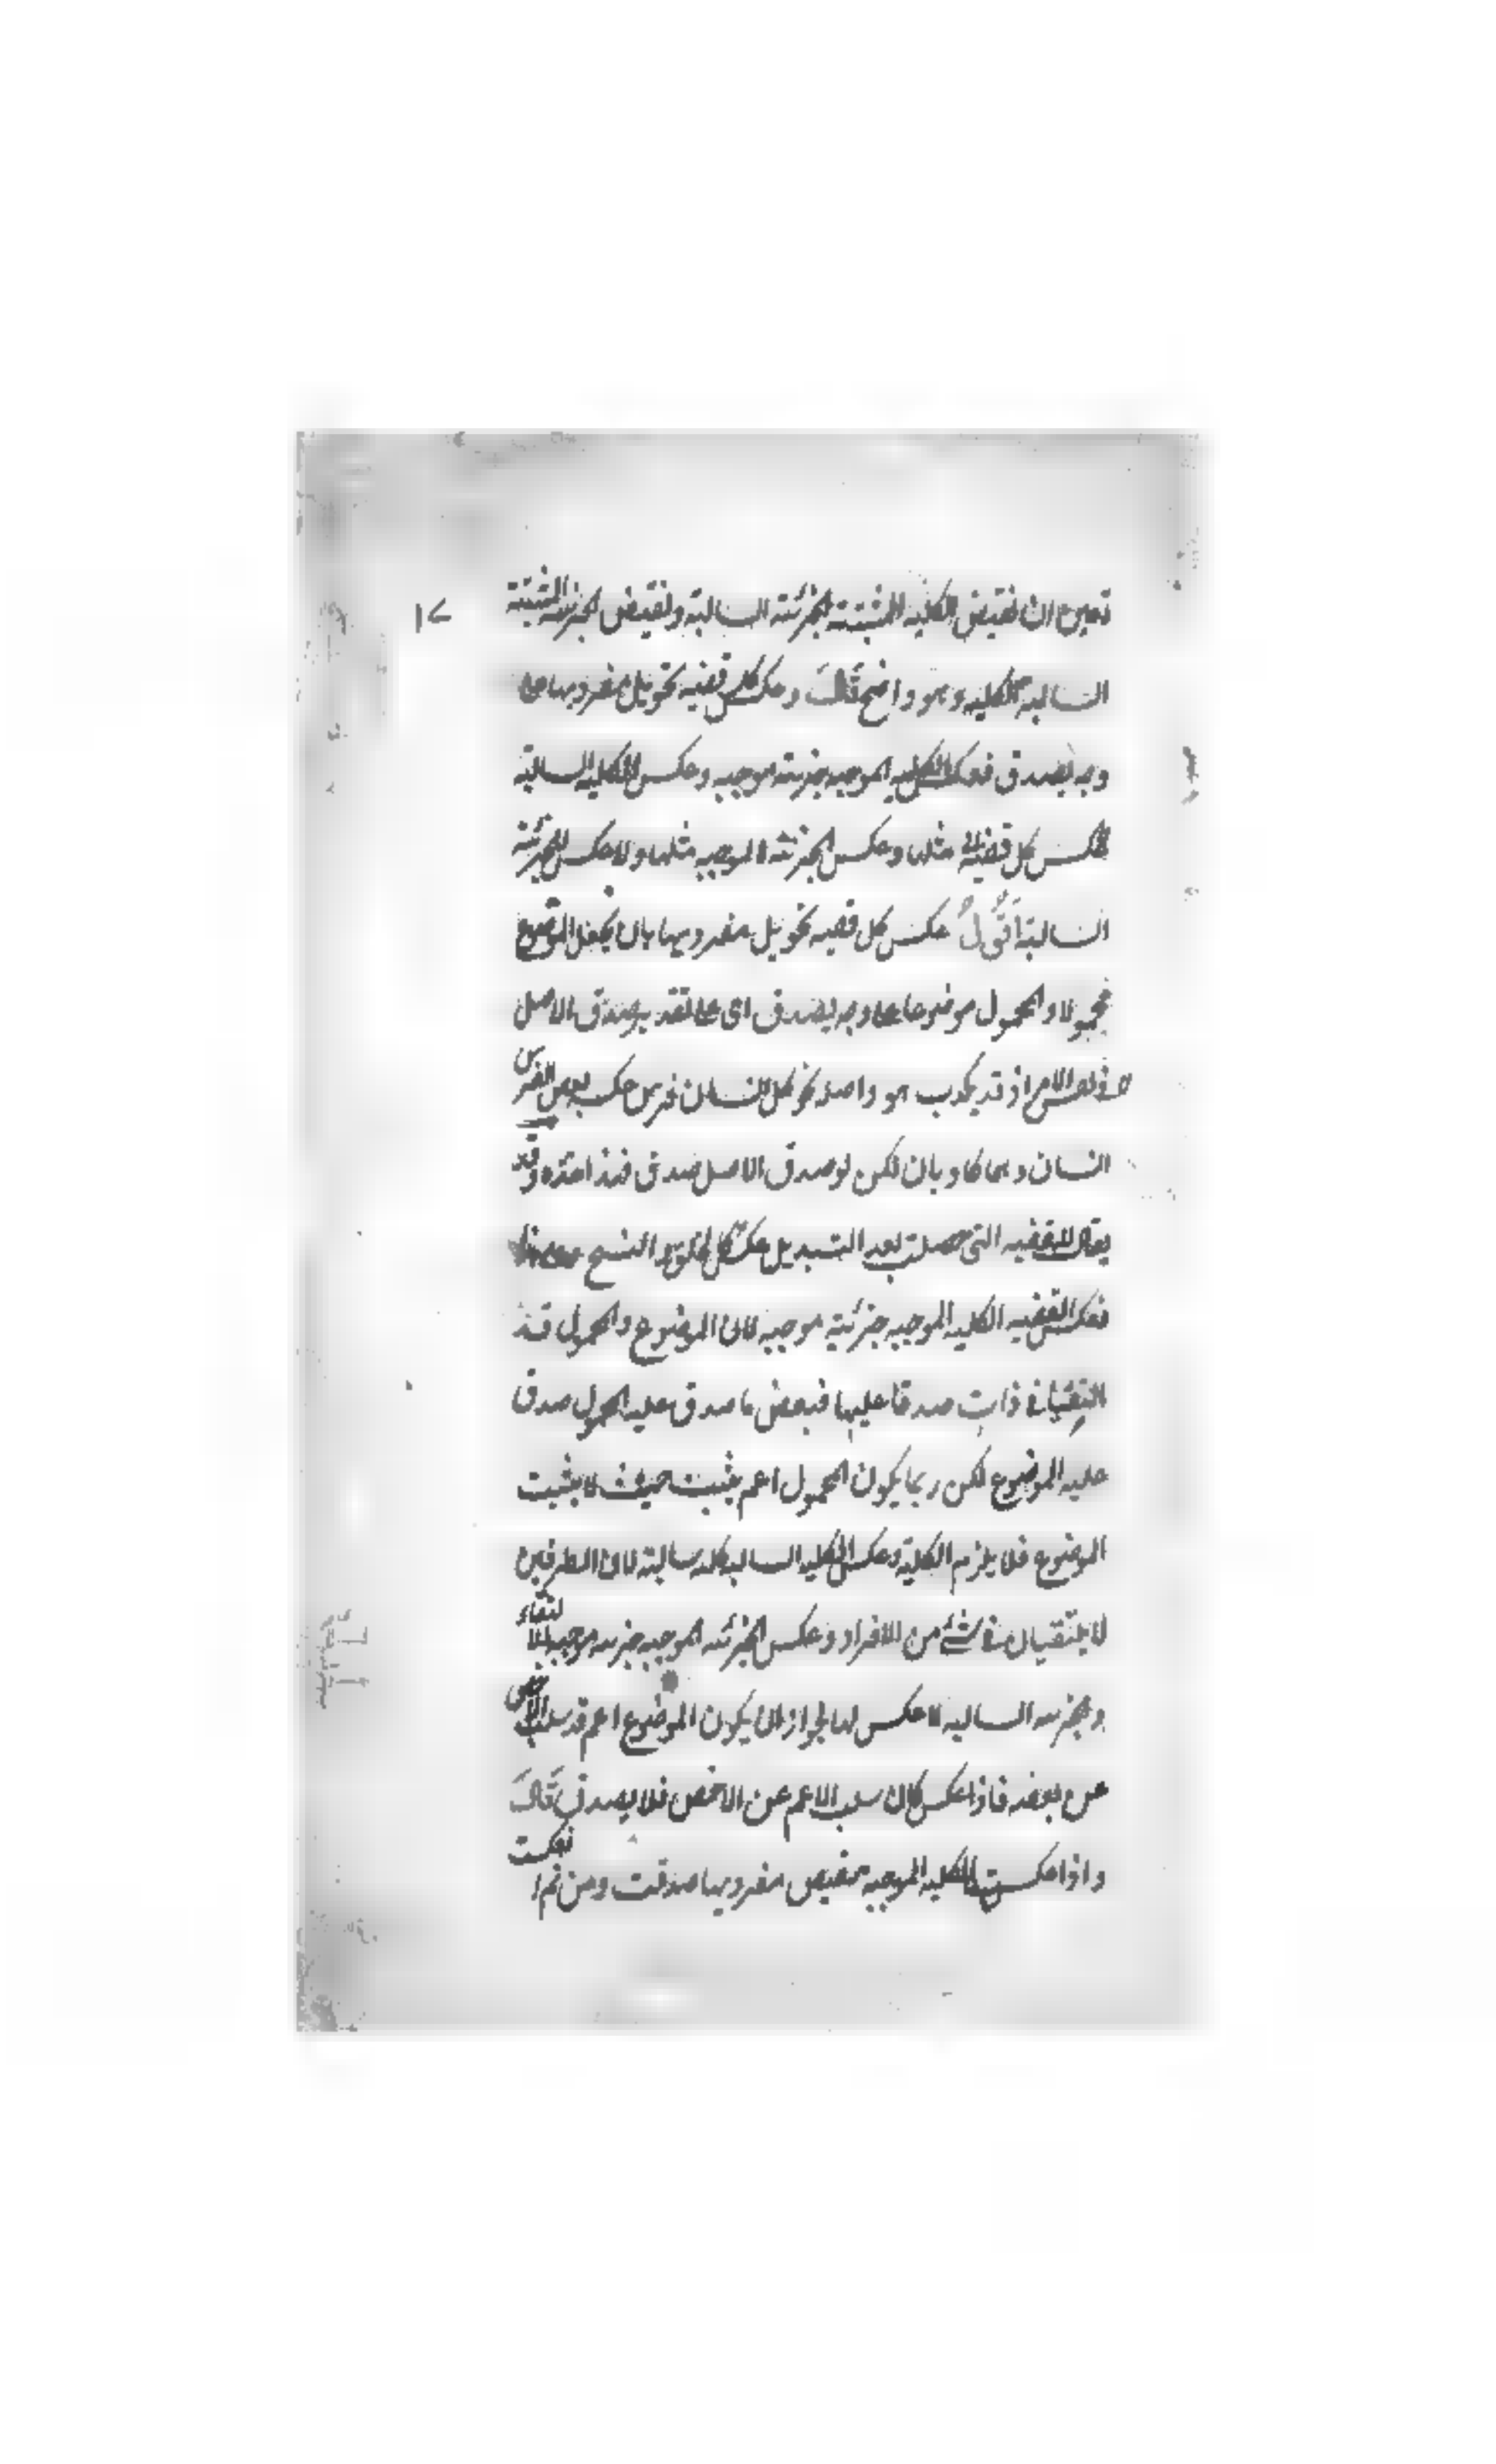 تعين ان نقيض الكليه المثبتة الجزئية السالبة ونقيض الجزئيه المثبتة
١٧
السالبه الكليه وهو واضح قال وعكس كل قضيه تحويل مفرديها على
وجه يصدق فعكس الكليه الموجبه جزئية موجبه وعكس الكليه السالبة
كل قضيه مثلها وعكس الجزئية الموجبه مثلها ولا عكس للجزئية
السالبة اقول عكس كل قضيه تحويل مفرديها بان يجعل الموضوع
محمولا والمحمول موضوعا على وجه يصدق اى على تقدير صدق الاصل
لا فى نفس الامر اذ قد يكذب هو واصله نحو كل انسان فرس عكسه بعض الفرس
انسان وهما كاذبان لكن لو صدق الاصل صدق فهذا حده وقد
يقال للقضيه التى حصلت بعد التبديل عكس
فعكس القضيه الكليه الموجبه جزئية موجبه لان الموضوع والمحمول قد
التقيا فى ذات صدقا عليها فبعض ما صدق عليه المحمول صدق
عليه الموضوع لكن ربما يكون المحمول اعم يثبت حيث لا يثبت
الموضوع فلا يلزم الكلية وعكس الكليه السالبه كليه سالبة لان الطرفين
لا يلتقيان فى شئ من الافراد وعكس الجزئيه الموجبه جزئيه موجبه للالتقاء
والجزئيه السالبه لا عكس لها لجواز ان يكون الموضوع اعم قد سلب الاخص
عن بعضه فاذا عكس كان سلب الاعم عن الاخص فلا يصدق قال
واذا عكست الكليه الموجبه بنقيض مفرديها صدقت ومن ثم انعكست